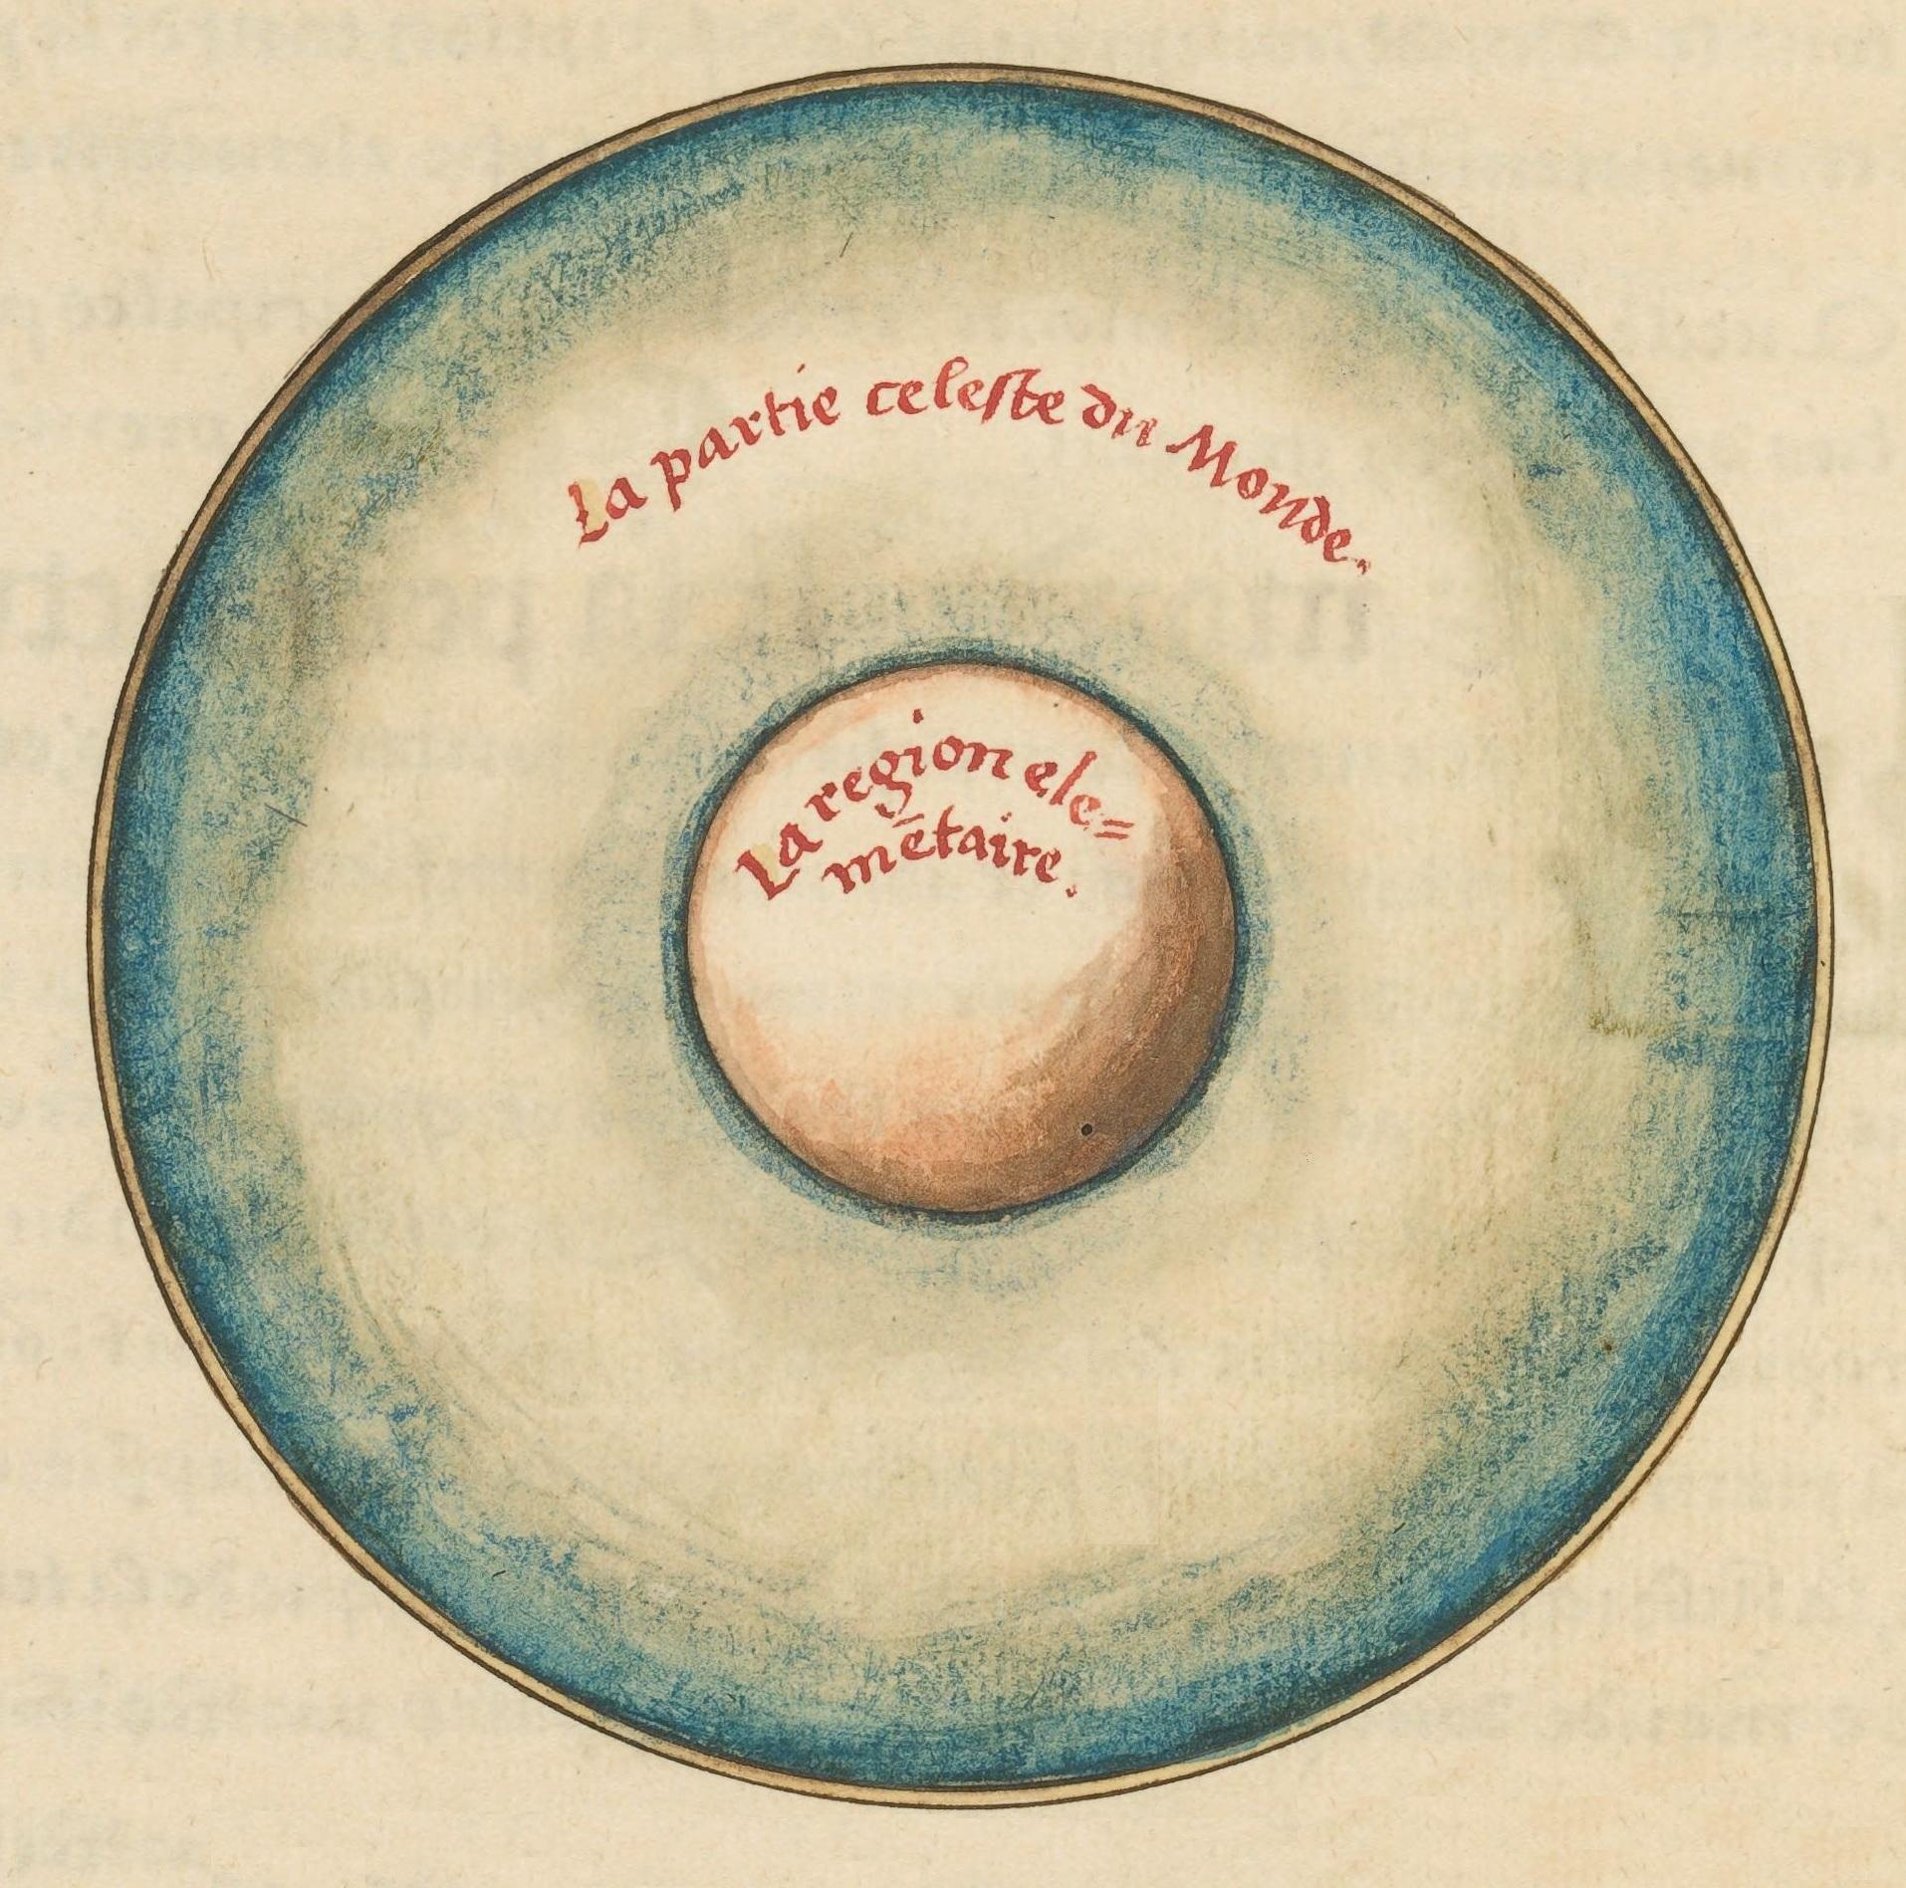 La partie celeste du Monde.
La region ele=
mētaire.